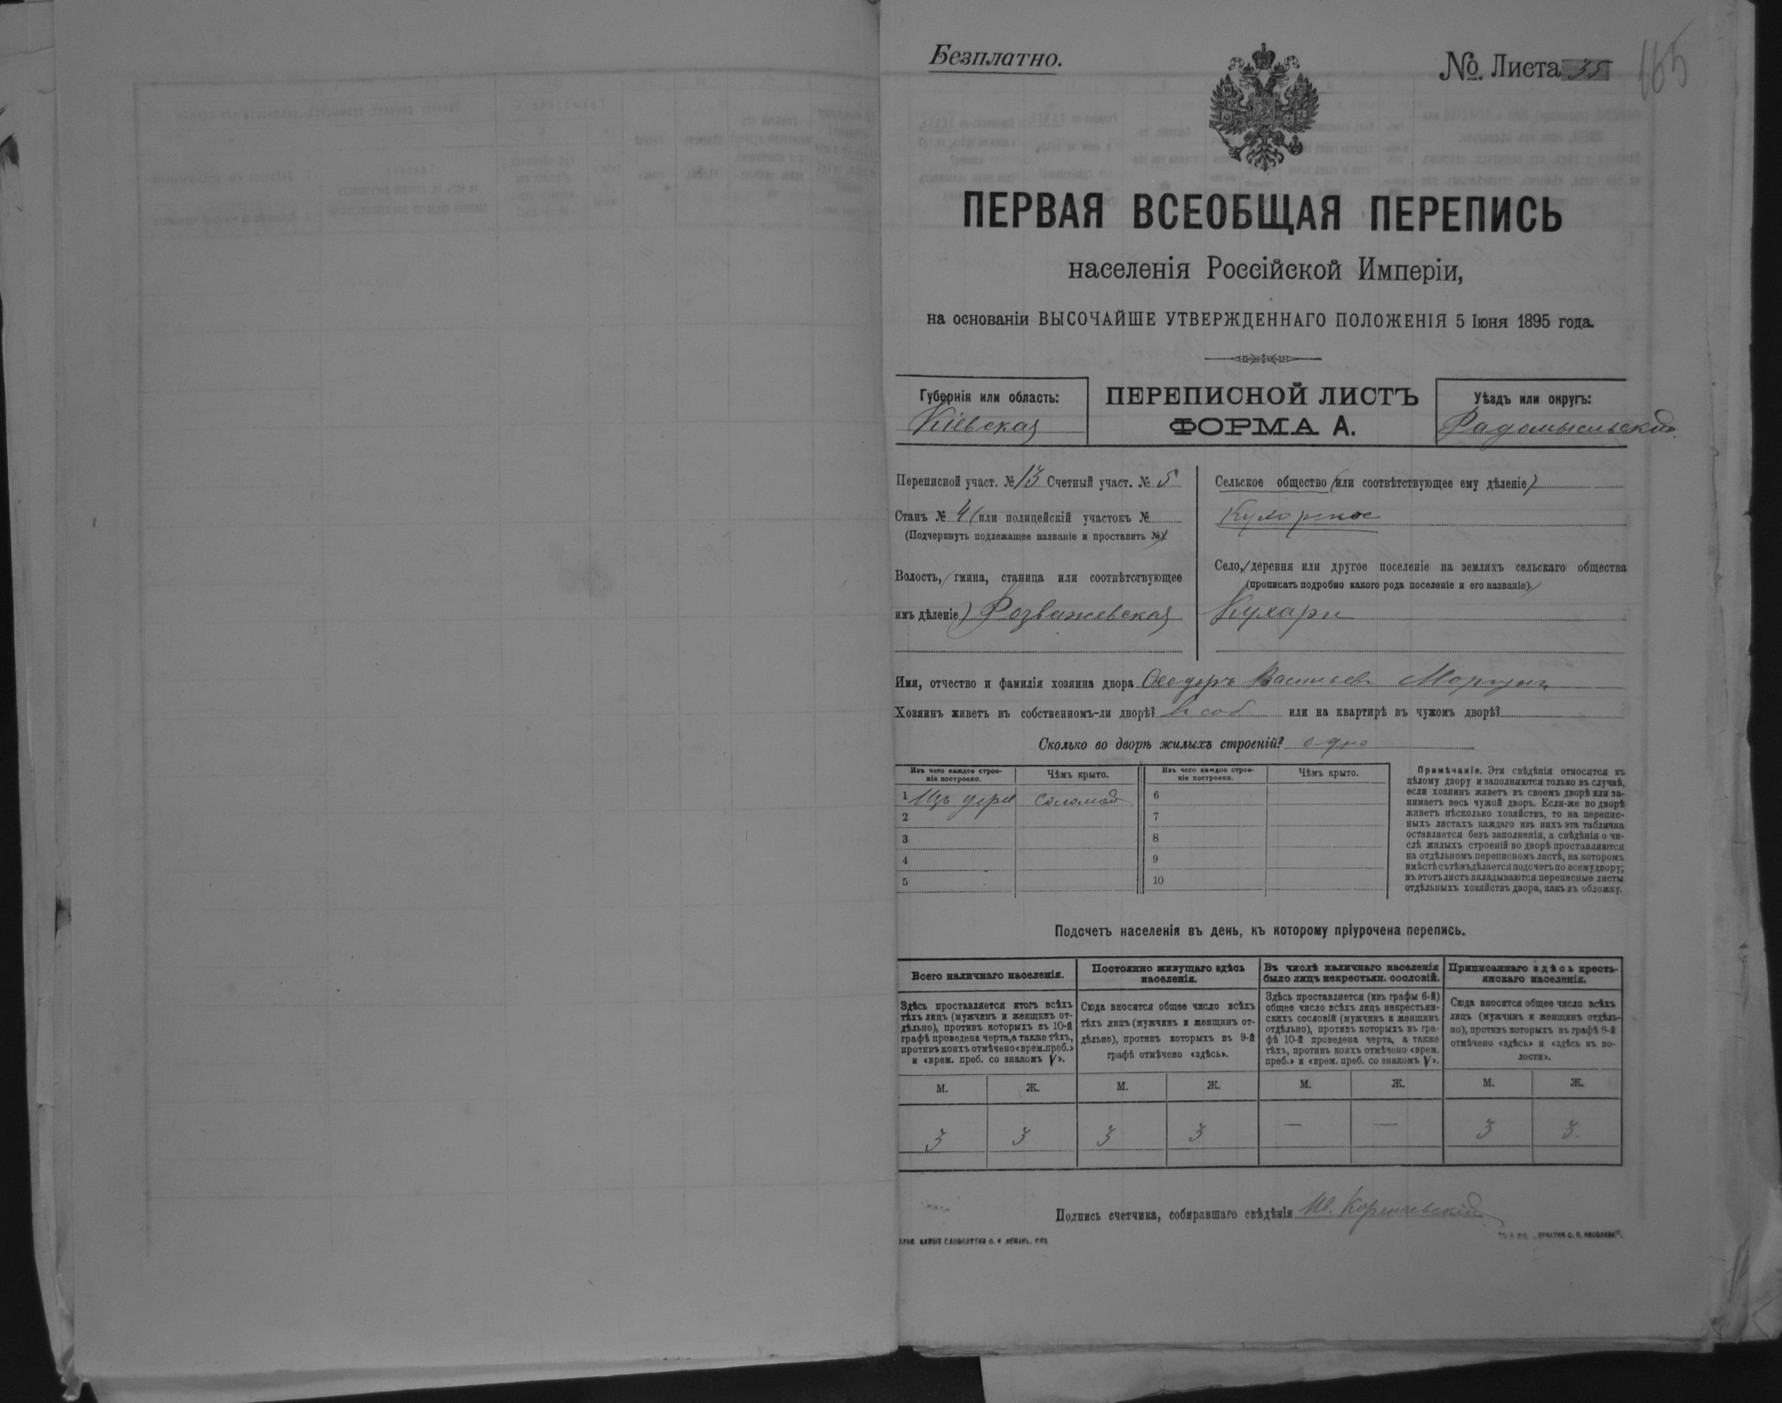 Безплатно.
№ Листа 35
165
ПЕРВАЯ ВСЕОБЩАЯ ПЕРЕПИСЬ
населенія Россійской Имперіи,
на основаніи ВЫСОЧАЙШЕ УТВЕРЖДЕННАГО ПОЛОЖЕНІЯ 5 Іюня 1895 года.
Губернія или область:
Кіевская
ПЕРЕПИСНОЙ ЛИСТЪ
ФОРМА А.
Уѣздъ или округъ:
Радомысльскій
Переписной участ. № 13 Счетный участ. № 5
Станъ № 4 (или полицейскій участокъ №
(Подчеркнуть подлежащее названіе и проставить №)
Волость, (гмина, станица или соотвѣтствующее
имъ дѣленіе) Розважевская
Сельское общество (или соотвѣтствующее ему дѣленіе)
Кухарское
Село, (деревня или другое поселеніе на земляхъ сельскаго общества
(прописать подробно какого рода поселеніе и его названіе)
Кухари
Имя, отчество и фамилія хозяина двора Ѳеодоръ Васильев
Хозяинъ живетъ въ собственномъ-ли дворѣ? в соб или на квартирѣ въ чужомъ дворѣ?
Сколько во дворѣ жилыхъ строеній? одно
Изъ чего каждое строе-
ніе построено.
Чѣмъ крыто.
Изъ чего каждое строе-
ніе построено.
Чѣмъ крыто.
1 Изъ дерев соломой 6
2 7
3 8
4 9
5 10
Примѣчаніе. Эти свѣдѣнія относятся къ
цѣлому двору и заполняются только въ случаѣ,
если хозяинъ живетъ въ своемъ дворѣ или за-
нимаетъ весь чужой дворъ. Если-же во дворѣ
живетъ нѣсколько хозяйствъ, то на перепис-
ныхъ листахъ каждаго изъ нихъ эта табличка
оставляется безъ заполненія, а свѣдѣнія о чи-
слѣ жилыхъ строеній во дворѣ проставляются
на отдѣльномъ переписномъ листѣ, на которомъ
вмѣстѣ съ тѣмъ дѣлается подсчетъ по всему двору;
въ этотъ листъ вкладываются переписные листы
отдѣльныхъ хозяйствъ двора, какъ въ обложку.
Подсчетъ населенія въ день, къ которому пріурочена перепись.
Всего наличнаго населенія.
Постоянно живущаго здѣсь
населенія.
Въ числѣ наличнаго населенія
было лицъ некрестьян. сословій.
Приписаннаго здѣсь кресть-
янскаго населенія.
Здѣсь проставляется итогъ всѣхъ
тѣхъ лицъ (мужчинъ и женщинъ от-
дѣльно), противъ которыхъ въ 10-й
графѣ проведена черта, а также тѣхъ,
противъ коихъ отмѣчено «врем. преб.»
и «врем. преб. со знакомъ V».
Сюда вносится общее число всѣхъ
тѣхъ лицъ (мужчинъ и женщинъ от-
дѣльно), противъ которыхъ въ 9-й
графѣ отмѣчено «здѣсь».
Здѣсь проставляется (изъ графы 6-й)
общее число всѣхъ лицъ некрестьян-
скихъ сословій (мужчинъ и женщинъ
отдѣльно), противъ которыхъ въ гра-
фѣ 10-й проведена черта, а также
тѣхъ, противъ коихъ отмѣчено «врем.
преб.» и «врем. преб. со знакомъ V».
Сюда вносится общее число всѣхъ
лицъ (мужчинъ и женщинъ отдѣль-
но), противъ которыхъ въ графѣ 8-й
отмѣчено «здѣсь» и «здѣсь въ во-
лости».
М. Ж. М. Ж. М. Ж. М. Ж.
3 3 3 3 — — 3 3
Подпись счетчика, собиравшаго свѣдѣнія